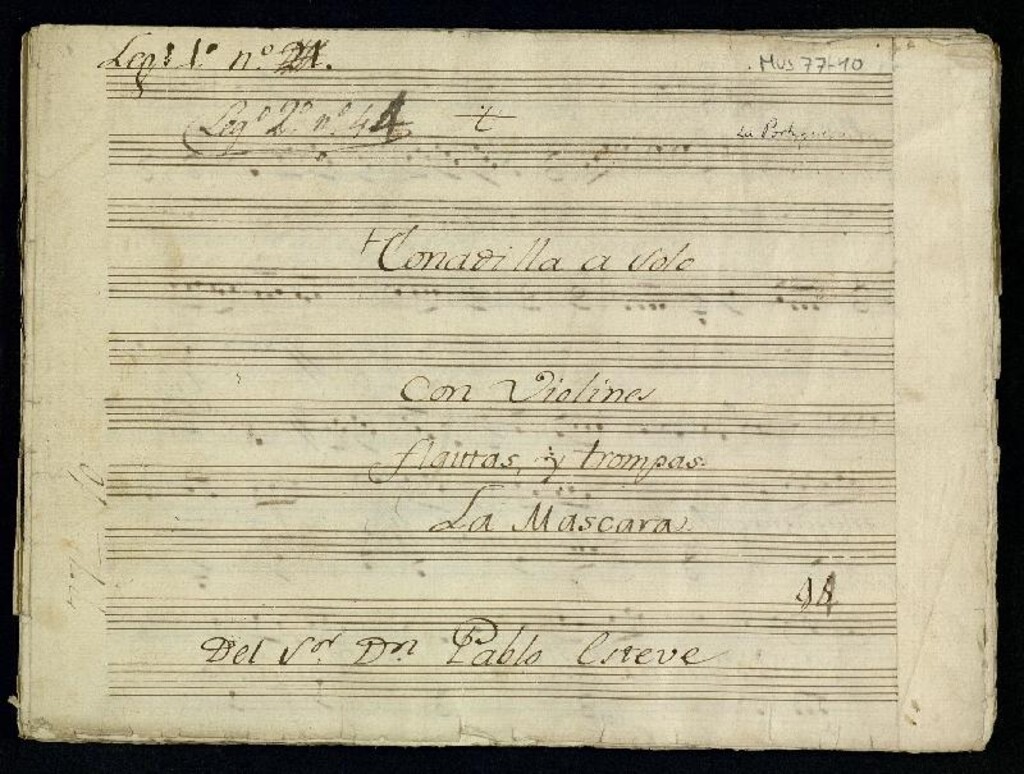 Leg.º 1º nº 21.
Mus 77-10
Leg.º 2º nº 44
t
La
Tonadilla a Solo
Con Violines
flautas, y trompas.
La Mascara.
Del S.or D.n Pablo Esteve